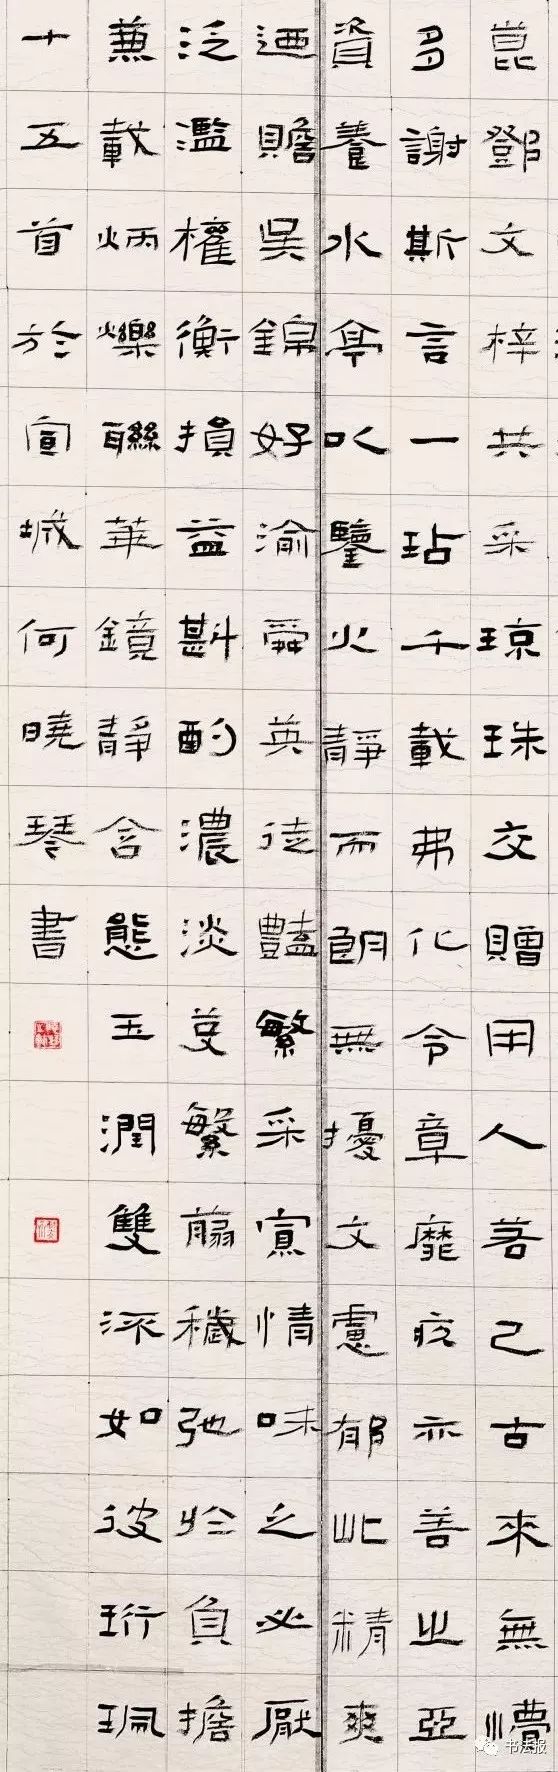 崑鄧文梓共采琼珠交贈用人若己古來無懵
多謝斯言一玷千載弗化令章靡疚亦善之亞
資養水亭以鑒火靜而朗無擾文慮郁此精爽
迺贍吳錦好渝舜英徒豔繁采寡情味之必厭
泛濫權衡損益斟酌濃淡芟繁翦穢弛於負擔
兼載炳爍聯華鏡靜含態玉潤雙流如彼珩珮
十五首於宣城何曉琴書
书法报